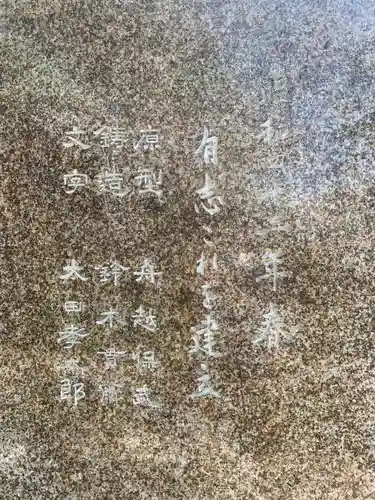 和 年春
有志これを建立
原型 舟越保武
鋳造 鈴木貫爾
文字 太田孝太郎